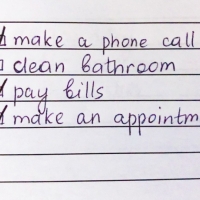 make a phone call
clean bathroom
pay bills
make an appointm